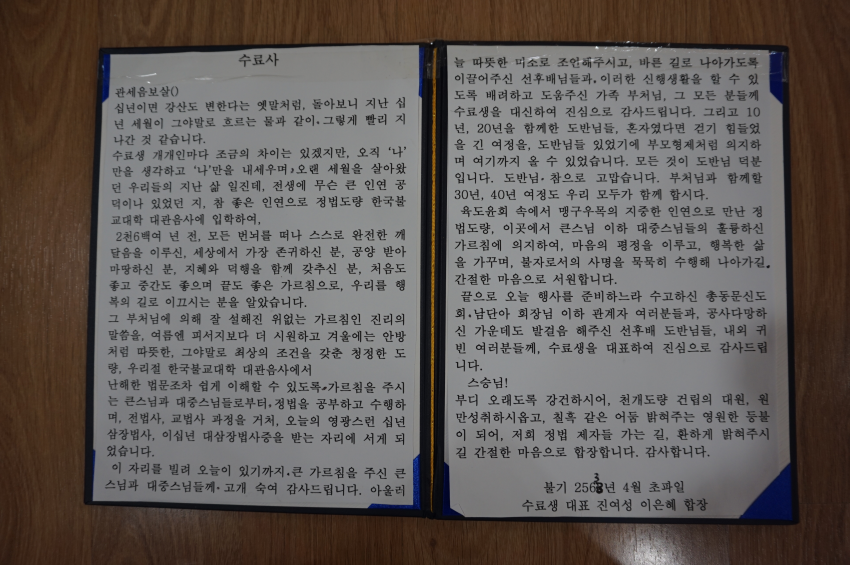 수료사
관세음보살()
십년이면 강산도 변한다는 옛말처럼, 돌아보니 지난 십
년 세월이 그야말로 흐르는 물과 같이, 그렇게 빨리 지
나간 것 같습니다.
수료생 개개인마다 조금의 차이는 있겠지만, 오직 '나'
만을 생각하고 '나'만을 내세우며, 오랜 세월을 살아왔
던 우리들의 지난 삶 일진데, 전생에 무슨 큰 인연 공
덕이나 있었던 지, 참 좋은 인연으로 정법도량 한국불
교대학 대관음사에 입학하여,
2천6백여 년 전, 모든 번뇌를 떠나 스스로 완전한 깨
달음을 이루신, 세상에서 가장 존귀하신 분, 공양 받아
마땅하신 분, 지혜와 덕행을 함께 갖추신 분, 처음도
좋고 중간도 좋으며 끝도 좋은 가르침으로, 우리를 행
복의 길로 이끄시는 분을 알았습니다.
그 부처님에 의해 잘 설해진 위없는 가르침인 진리의
말씀을, 여름엔 피서지보다 더 시원하고 겨울에는 안방
처럼 따뜻한, 그야말로 최상의 조건을 갖춘 청정한 도
량, 우리절 한국불교대학 대관음사에서
난해한 법문조차 쉽게 이해할 수 있도록, 가르침을 주시
는 큰스님과 대중스님들로부터, 정법을 공부하고 수행하
며, 전법사, 교법사 과정을 거쳐, 오늘의 영광스런 십년
삼장법사, 이십년 대삼장법사증을 받는 자리에 서게 되
었습니다.
이 자리를 빌려 오늘이 있기까지, 큰 가르침을 주신 큰
스님과 대중스님들께, 고개 숙여 감사드립니다. 아울러
늘 따뜻한 미소로 조언해주시고, 바른 길로 나아가도록
이끌어주신 선후배님들과, 이러한 신행생활을 할 수 있
도록 배려하고 도움주신 가족 부처님, 그 모든 분들께
수료생을 대신하여 진심으로 감사드립니다. 그리고 10
년, 20년을 함께한 도반님들, 혼자였다면 걷기 힘들었
을 긴 여정을, 도반님들 있었기에 부모형제처럼 의지하
며 여기까지 올 수 있었습니다. 모든 것이 도반님 덕분
입니다. 도반님, 참으로 고맙습니다. 부처님과 함께할
30년, 40년 여정도 우리 모두가 함께 합시다.
육도윤회 속에서 맹구우목의 지중한 인연으로 만난 정
법도량, 이곳에서 큰스님 이하 대중스님들의 훌륭하신
가르침에 의지하여, 마음의 평정을 이루고, 행복한 삶
을 가꾸며, 불자로서의 사명을 묵묵히 수행해 나아가길,
간절한 마음으로 서원합니다.
끝으로 오늘 행사를 준비하느라 수고하신 총동문신도
회, 남단아 회장님 이하 관계자 여러분들과, 공사다망하
신 가운데도 발걸음 해주신 선후배 도반님들, 내외 귀
빈 여러분들께, 수료생을 대표하여 진심으로 감사드립
니다.
스승님!
부디 오래도록 강건하시어, 천개도량 건립의 대원, 원
만성취하시옵고, 칠흑 같은 어둠 밝혀주는 영원한 등불
이 되어, 저희 정법 제자들 가는 길, 환하게 밝혀주시
길 간절한 마음으로 합장합니다. 감사합니다.
불기 2563년 4월 초파일
수료생 대표 진여성 이은혜 합장